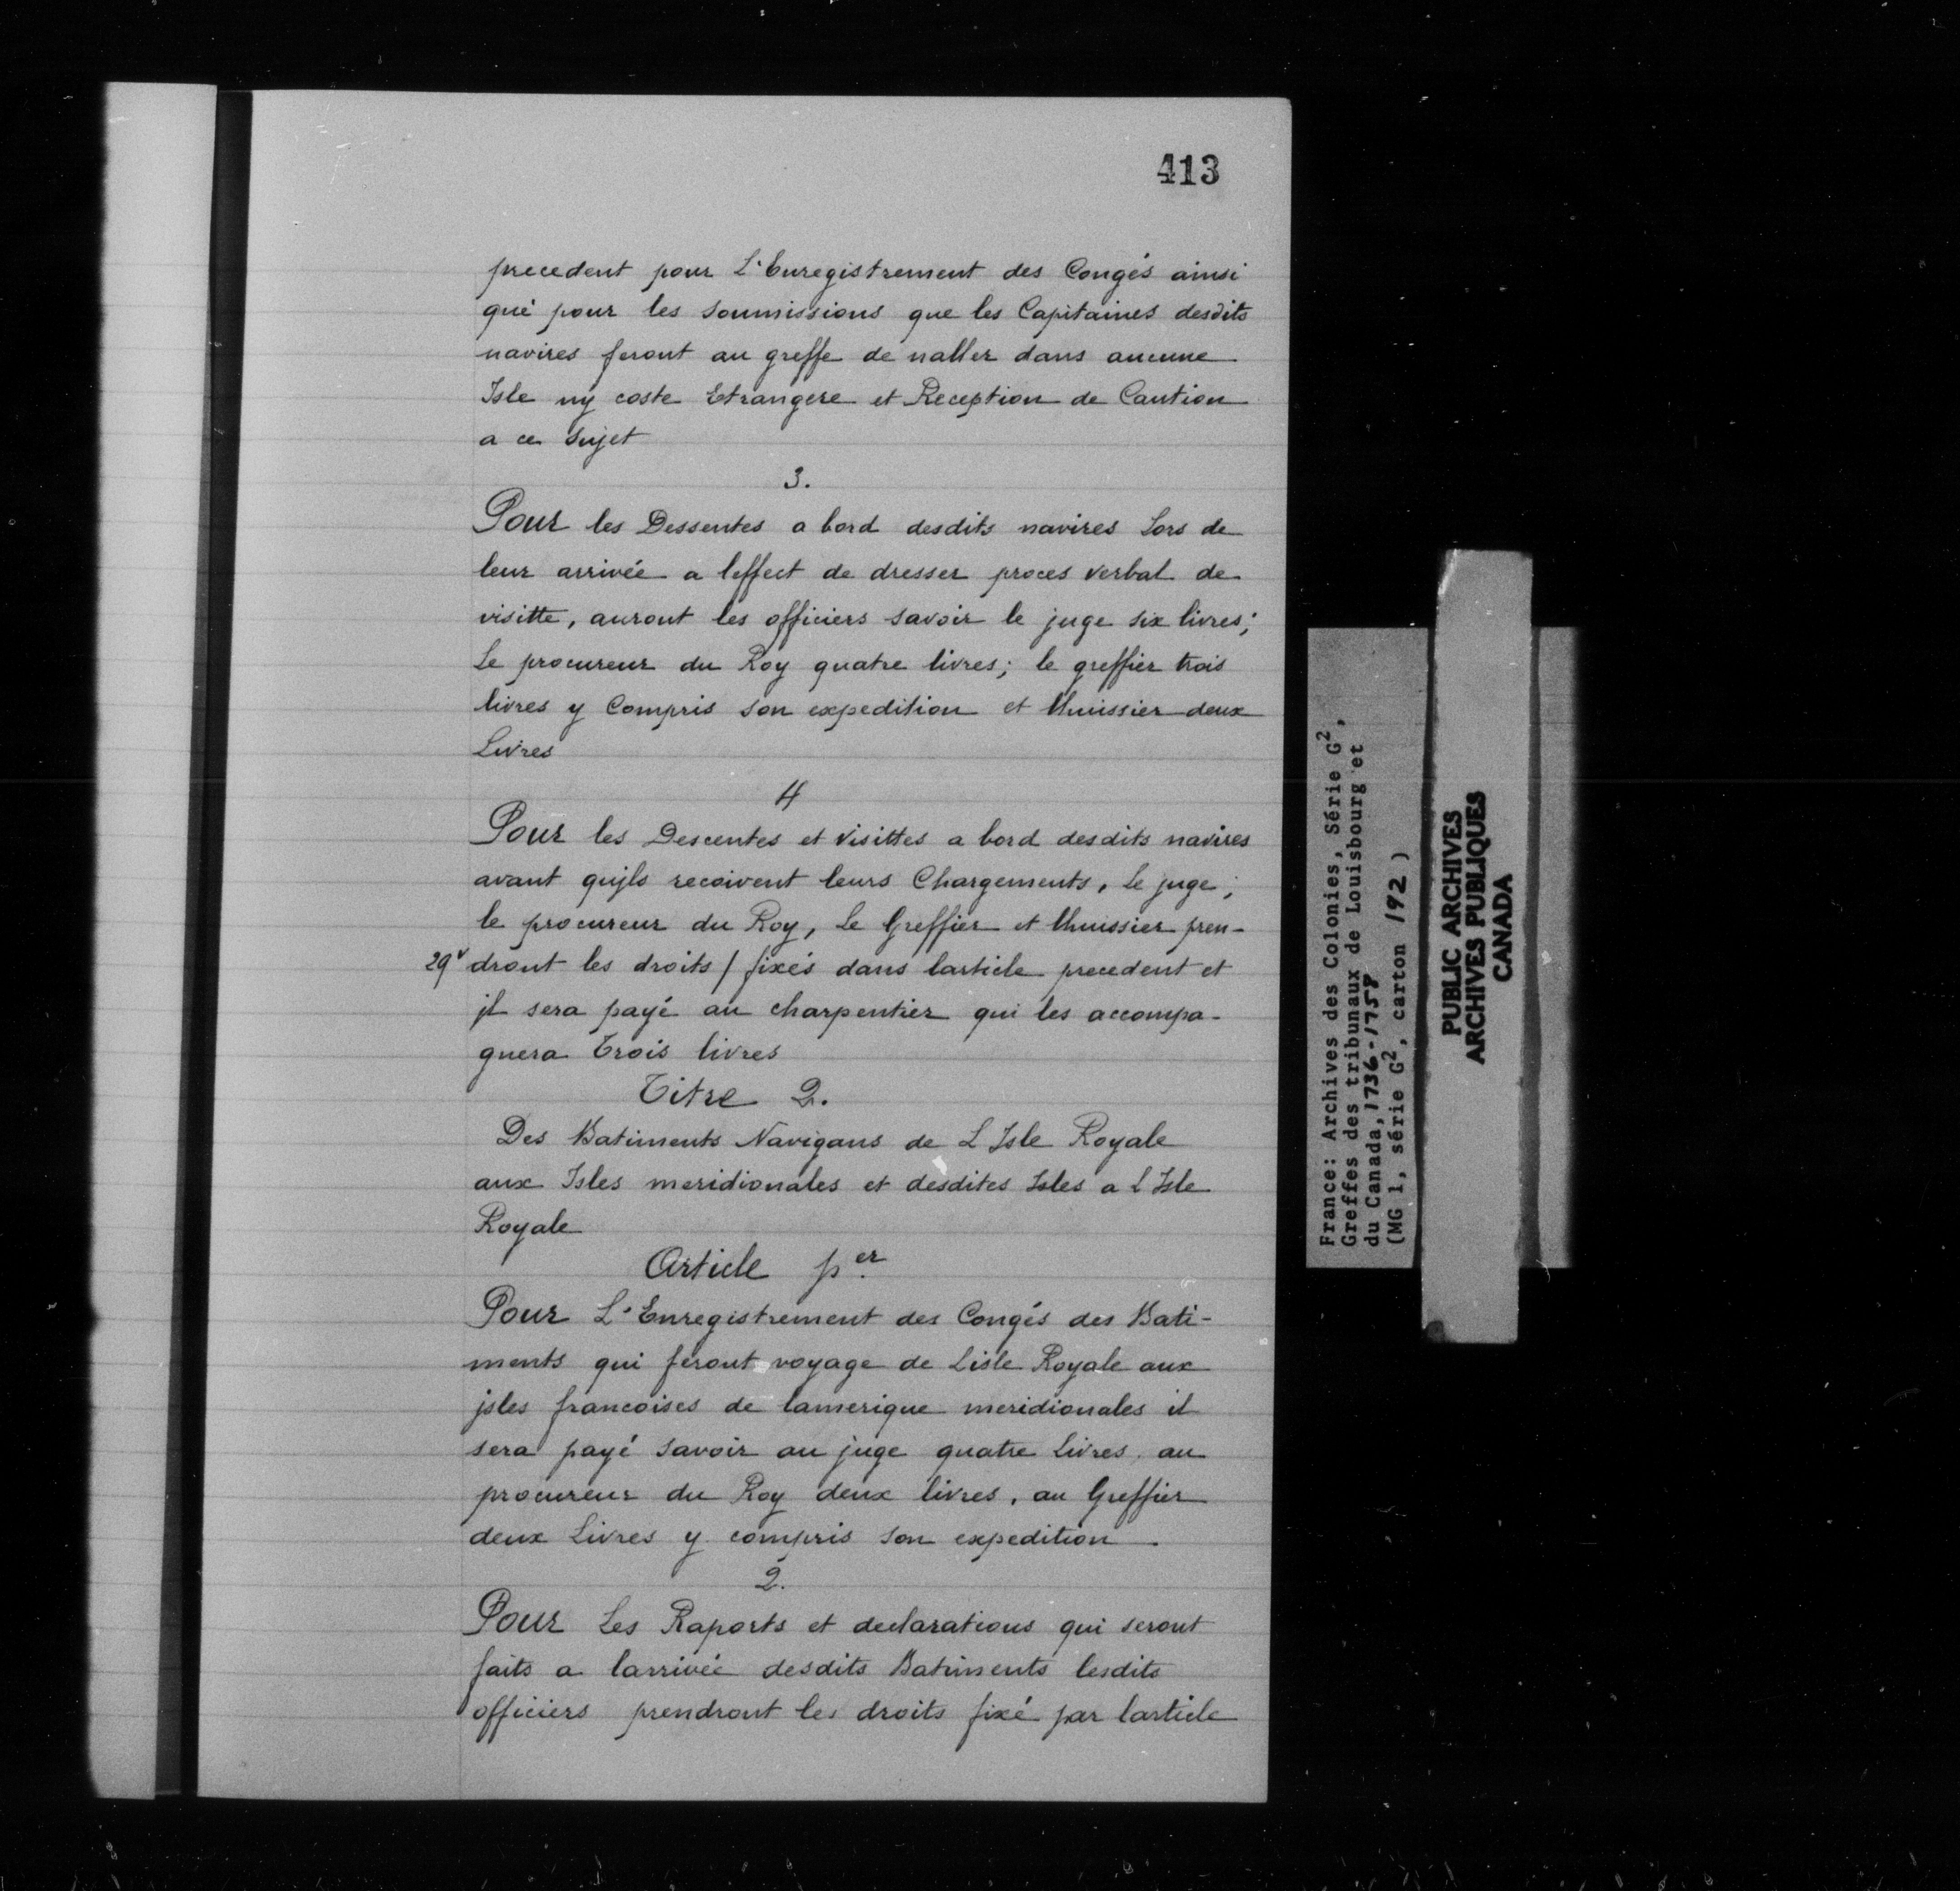 413
precedent pour L'Enregistrement des Congés ainsi
que pour les soumissions que les Capitaines desdits
navires feront au greffe de naller dans aucune
Isle ny coste Etrangere et Reception de Caution
a ce sujet
3.
Pour les Dessentes a bord desdits navires Lors de
leur arrivée a leffect de dresser proces verbal de
visitte, auront les officiers savoir le juge six livres;
Le procureur du Roy quatre livres; le greffier trois
livres y Compris son expedition et lhuissier deux
Livres
4
Pour les Descentes et visittes a bord desdits navires
avant qujls recoivent leurs Chargements, Le juge;
le procureur du Roy, Le Greffier et lhuissier pren-
29v dront les droits / fixés dans larticle precedent et
jl sera payé au charpentier qui les accompa-
gnera trois livres
Titre 2.
Des Batiments Navigans de L Isle Royale
aux Isles meridionales et desdites Isles a L Isle
Royale
Article per
Pour L'Enregistrement des Congés des Bati-
ments qui feront voyage de Lisle Royale aux
jsles francoises de lamerique meridionales il
sera payé savoir au juge quatre livres, au
procureur du Roy deux livres, au Greffier
deux Livres y compris son expedition.
2.
Pour Les Raports et declarations qui seront
faits a larrivée desdits Batiments lesdits
officiers prendront les droits fixé par larticle
France: Archives des Colonies, Série G2,
Greffes des tribunaux de Louisbourg et
du Canada, 1736-1758
(MG 1, série G2, carton 192)
PUBLIC ARCHIVES
ARCHIVES PUBLIQUES
CANADA